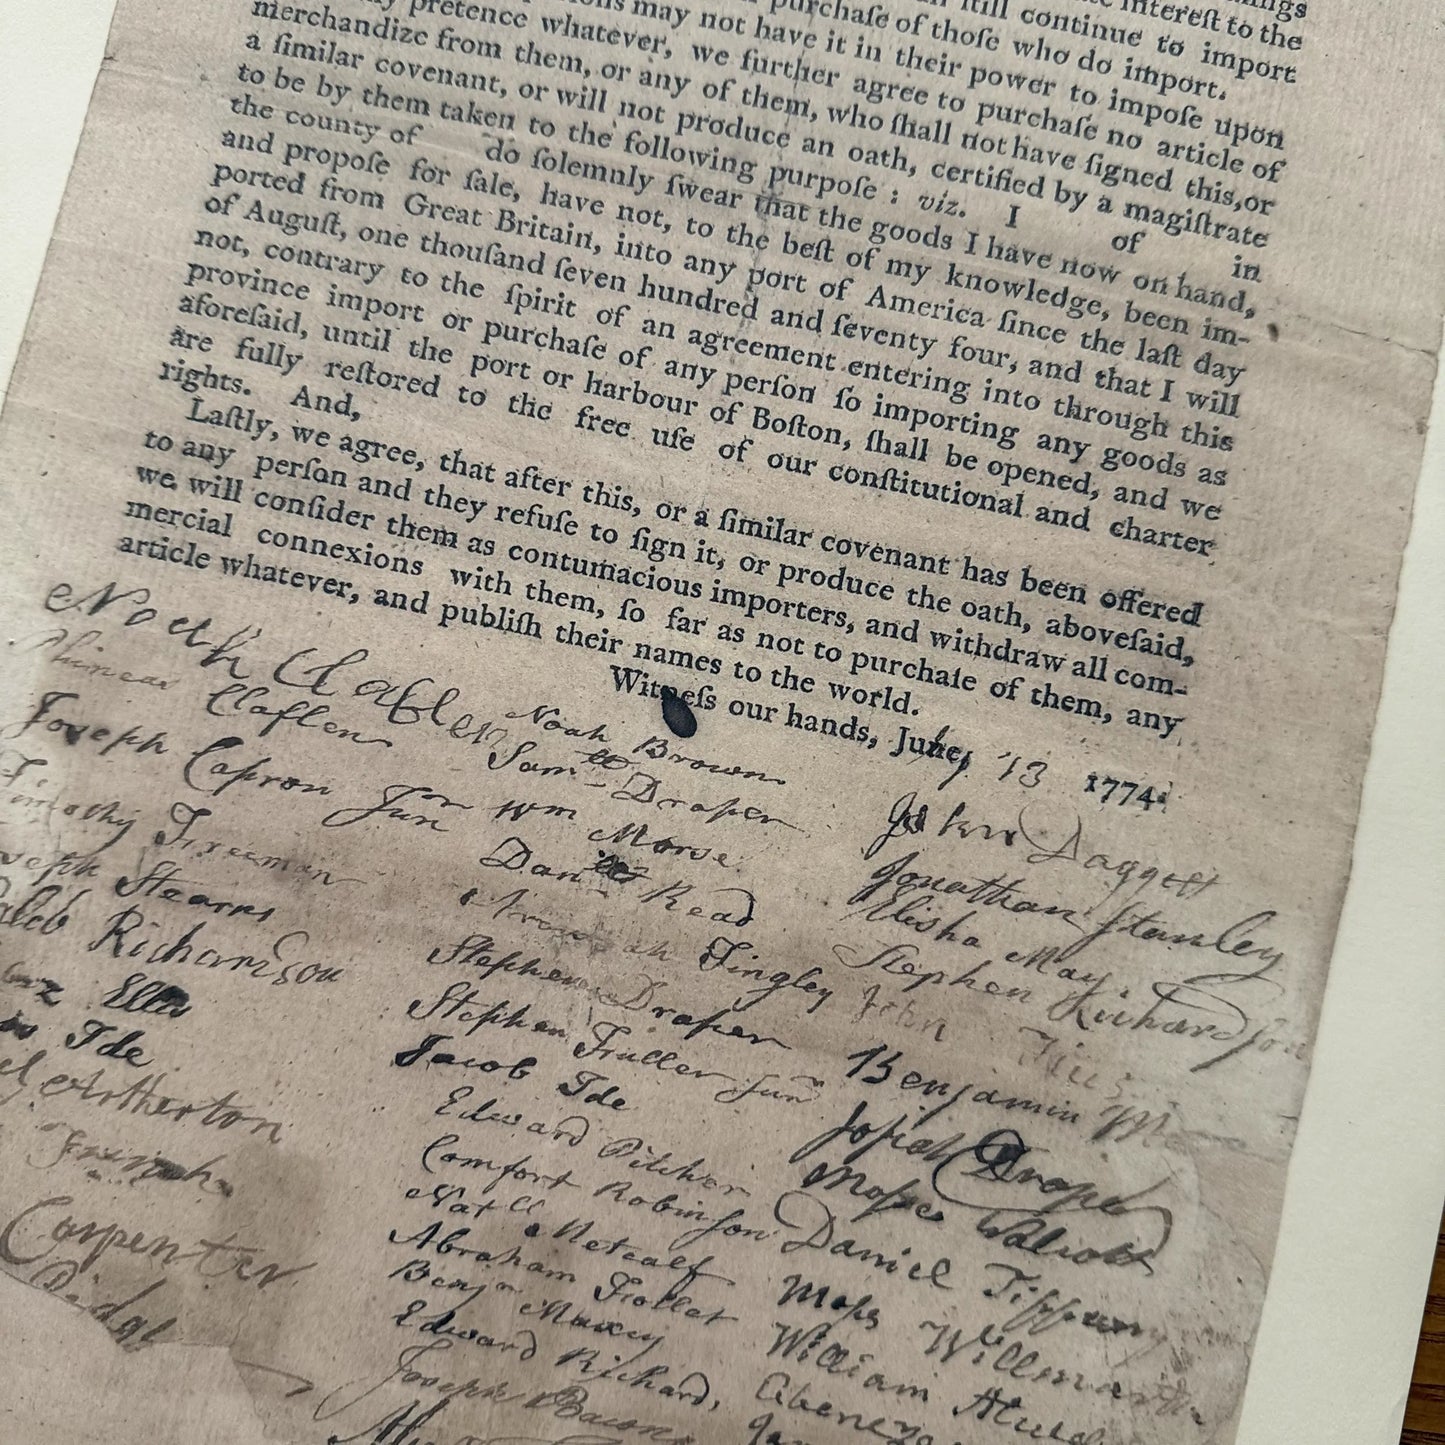 ings
interest to the
ſtill continue to import
purchaſe of thoſe who do import.
may not have it in their power to impoſe upon
pretence whatever, we further agree to purchaſe no article of
merchandize from them, or any of them, who ſhall not have ſigned this, or
a ſimilar covenant, or will not produce an oath, certified by a magiſtrate
to be by them taken to the following purpoſe : viz. I of in
the county of do ſolemnly ſwear that the goods I have now on hand,
and propoſe for ſale, have not, to the beſt of my knowledge, been im-
ported from Great Britain, into any port of America ſince the laſt day
of Auguſt, one thouſand ſeven hundred and ſeventy four, and that I will
not, contrary to the ſpirit of an agreement entering into through this
province import or purchaſe of any perſon ſo importing any goods as
aforeſaid, until the port or harbour of Boſton, ſhall be opened, and we
are fully reſtored to the free uſe of our conſtitutional and charter
rights. And,
Laſtly, we agree, that after this, or a ſimilar covenant has been offered
to any perſon and they refuſe to ſign it, or produce the oath, aboveſaid,
we will conſider them as contumacious importers, and withdraw all com-
mercial connexions with them, ſo far as not to purchaſe of them, any
article whatever, and publiſh their names to the world.
Witneſs our hands, June, 13 1774.
Noah Claflen
Phineas Claflen
Joseph Capron Jun
Timothy Freeman
Joseph Stearns
Caleb Richardson
Ellis
Ide
Atherton
French
Carpenter
Noah Brown
Samll Draper
Wm Morse
Danll Read
Tingley
Stephen Draper
Stephen Fuller Jun
Jacob Ide
Edward Pitcher
Comfort Robinson
Natll Metcalf
Abraham Follet
Benjn Maxcy
Edward Richard,
Joseph Bacon
John Daggett
Jonathan Stanley
Elisha May
Stephen Richardson
John
Benjamin
Josiah Draper
Moses Walcott
Daniel Tippany
Moſs Willmarth
William